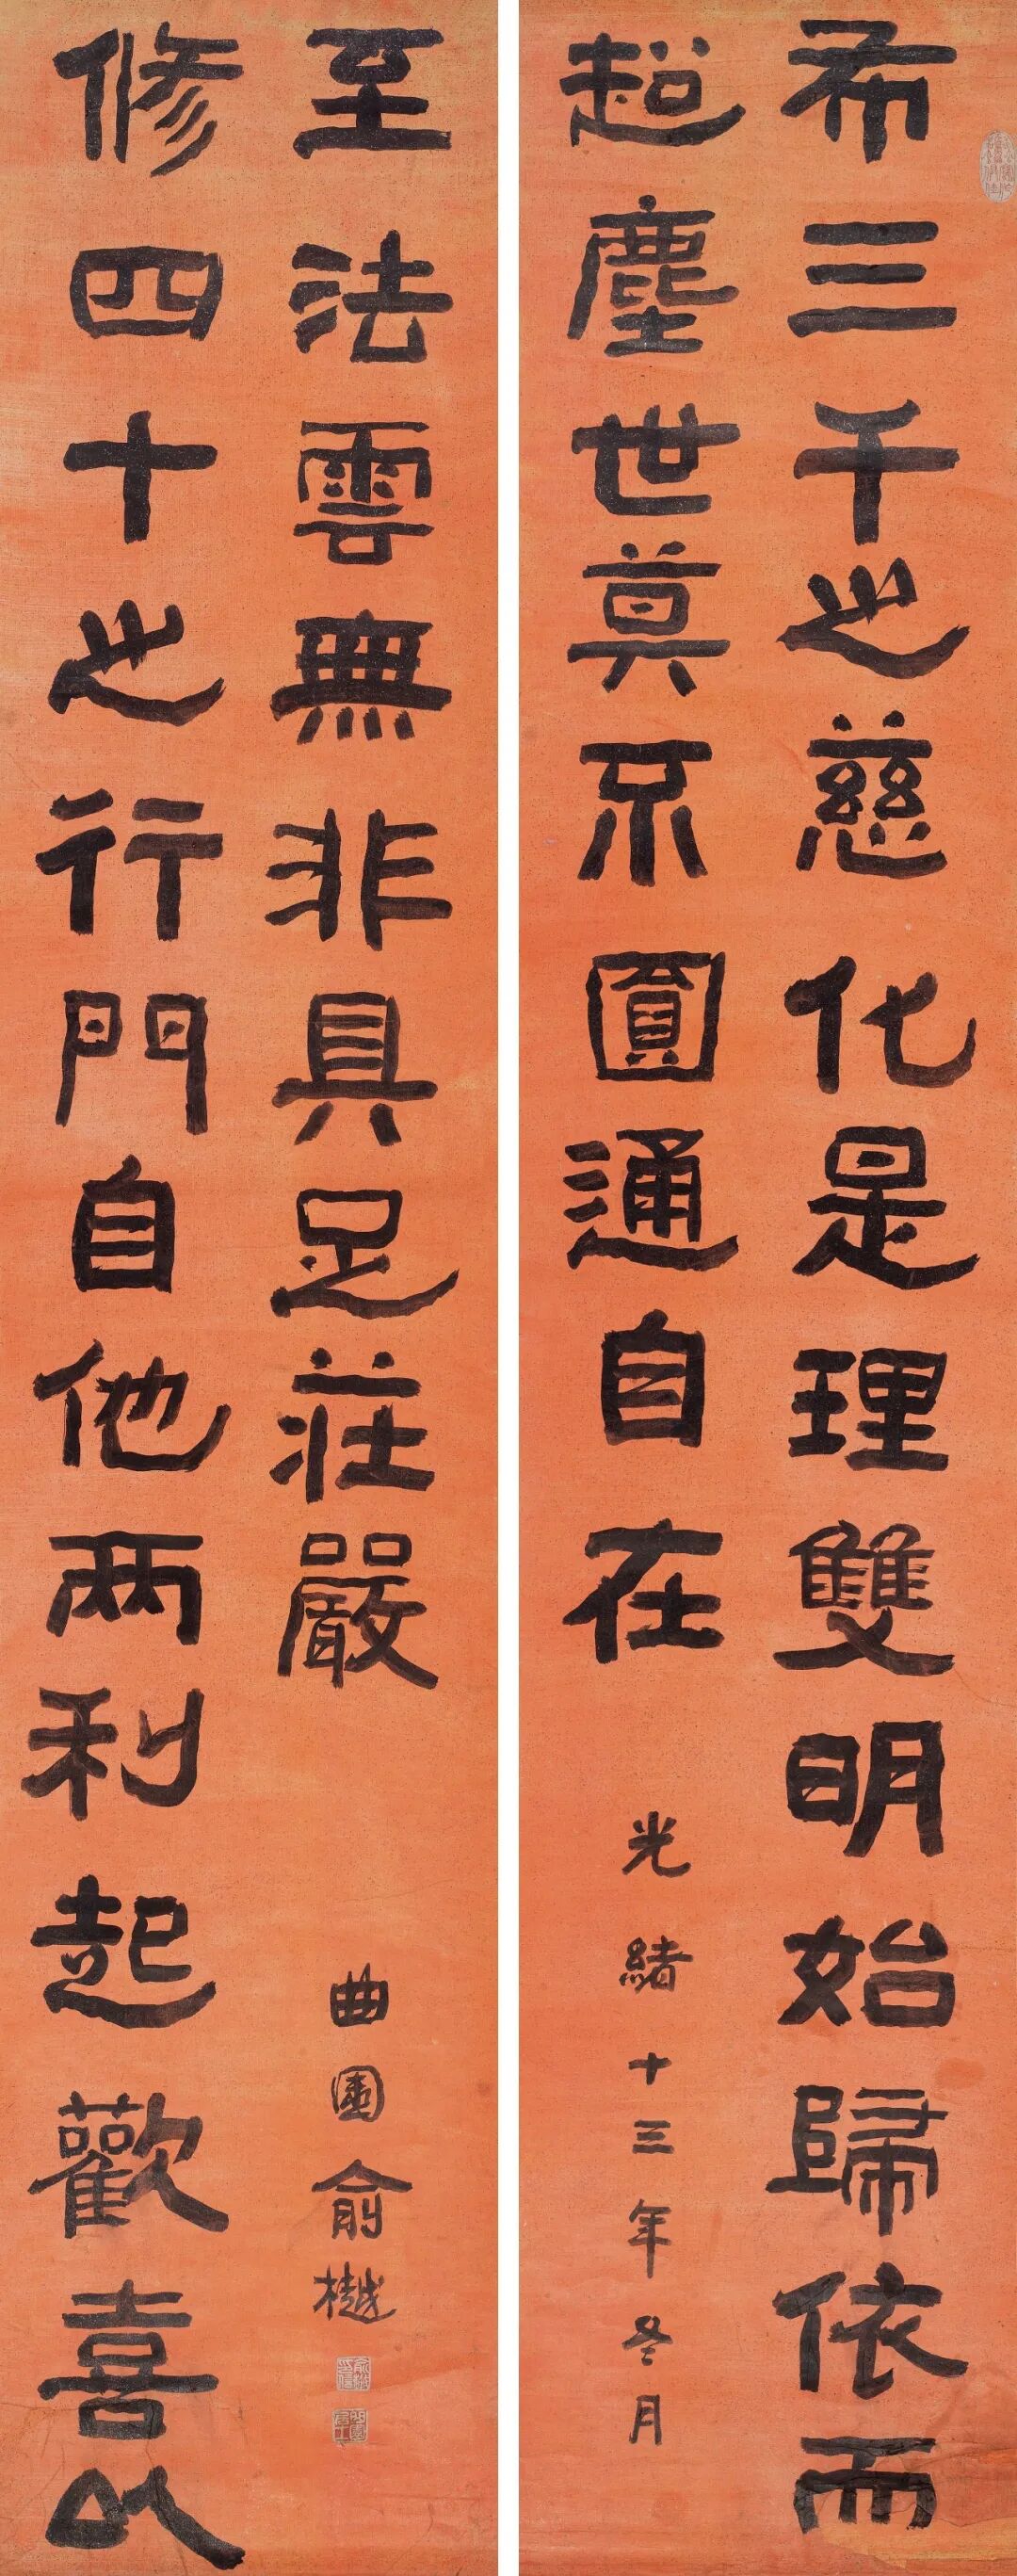 布三千之慈化是理雙明始歸依而
超塵世莫不圓通自在
光緒十三年冬月
修四十之行門自他两利起歡喜以
至法雲無非具足莊嚴
曲園俞樾